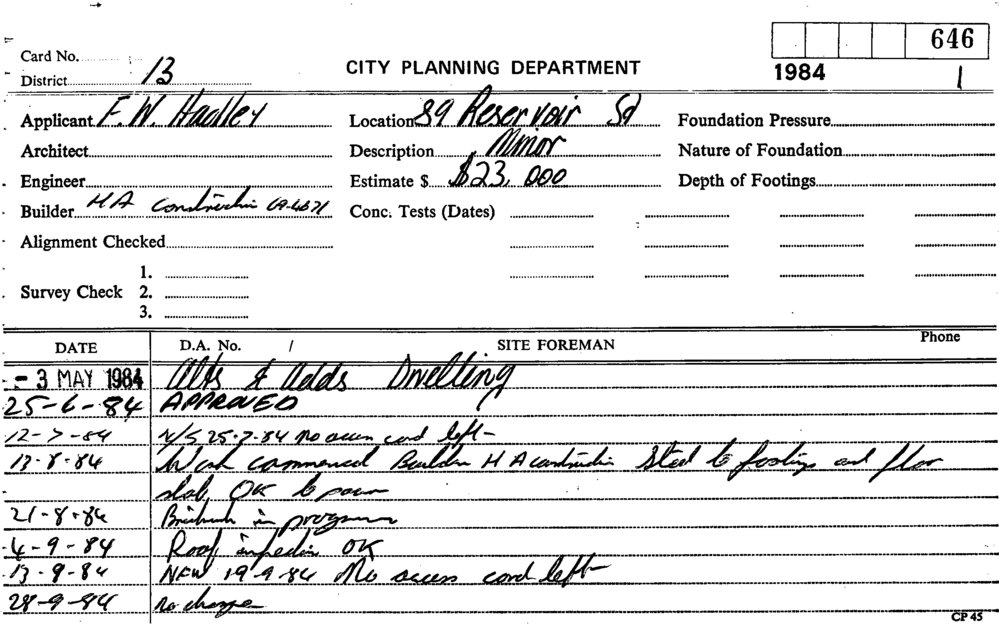 646
Card No.
District 13
CITY PLANNING DEPARTMENT
1984 1
Applicant F. W. Hadley Location 89 Reservoir Sd Foundation Pressure
Architect Description Minor Nature of Foundation
Engineer Estimate $ $23,000 Depth of Footings
Builder H A Construction Conc. Tests (Dates)
Alignment Checked
1.
Survey Check 2.
3.
DATE D.A. No. / SITE FOREMAN Phone
- 3 MAY 1984 Alts & Adds Dwelling
25-6-84 APPROVED
12-7-84 N/S 25-7-84 no access card left
13-8-84 Work commenced Builder H A Construction Steel to footings and floor
slab OK to pour
21-8-84 Brickwork in progress
4-9-84 Roof inspection OK
13-9-84 NEW 19-9-84 No access card left
28-9-84 no change
CP 45